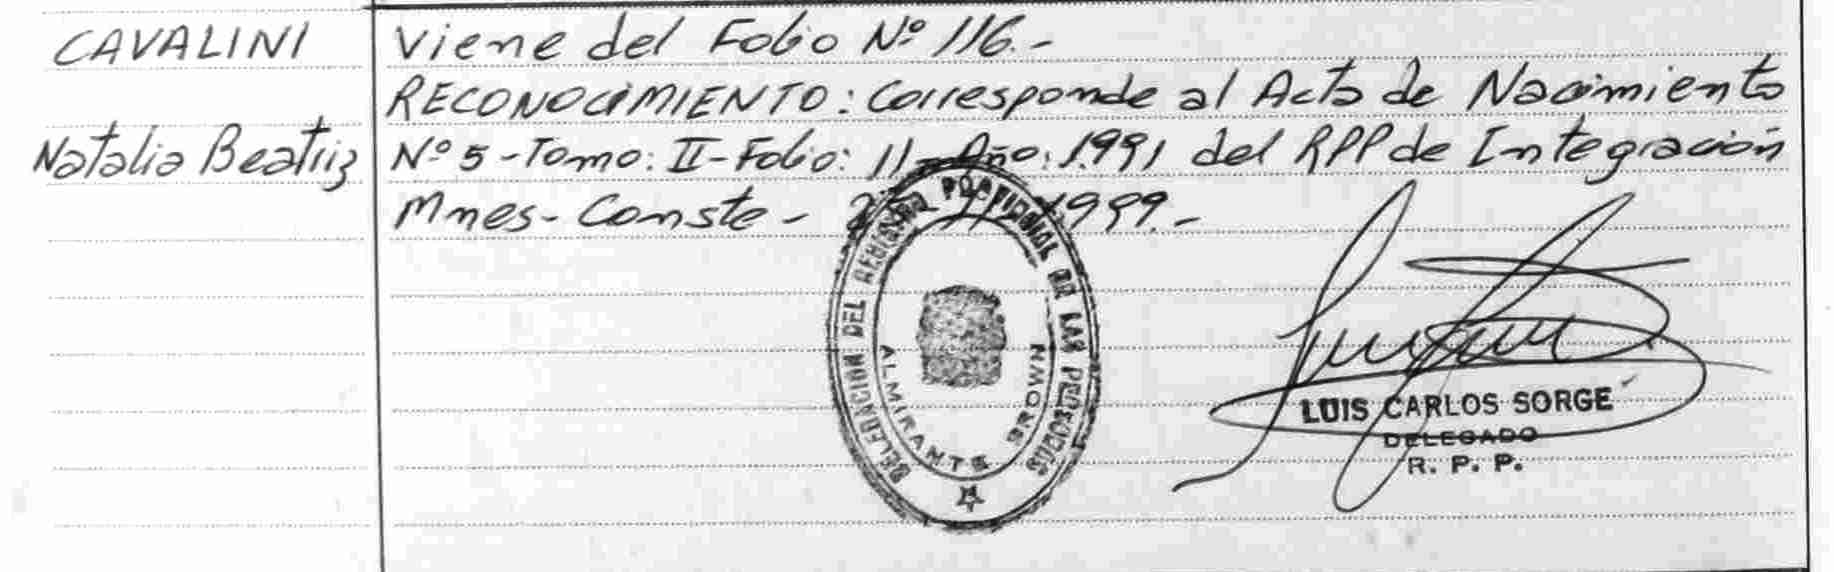 CAVALINI
Natalia Beatriz
Viene del Folio Nº 116.-
RECONOCIMIENTO: Corresponde al Acta de Nacimiento
Nº 5 - Tomo: II - Folio: 11 - Año: 1991 del RPP de Integración
Mnes - Conste - 1999.-
DELEGACION DEL REGISTRO PROVINCIAL DE LAS PERSONAS
ALMIRANTE BROWN
LUIS CARLOS SORGE
DELEGADO
R. P. P.